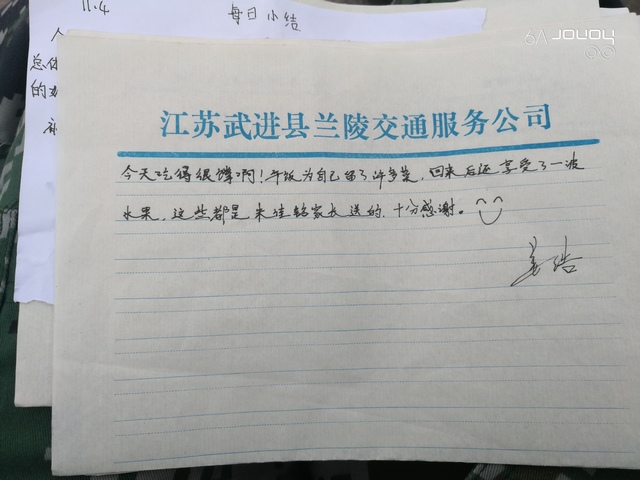 11.4
每日小结
总体
的
6A JOYOY
江苏武进县兰陵交通服务公司
今天吃得很撑啊！午饭为自己留了许多菜，回来后还享受了一波
水果，这些都是朱佳铭家长送的，十分感谢。
姜浩